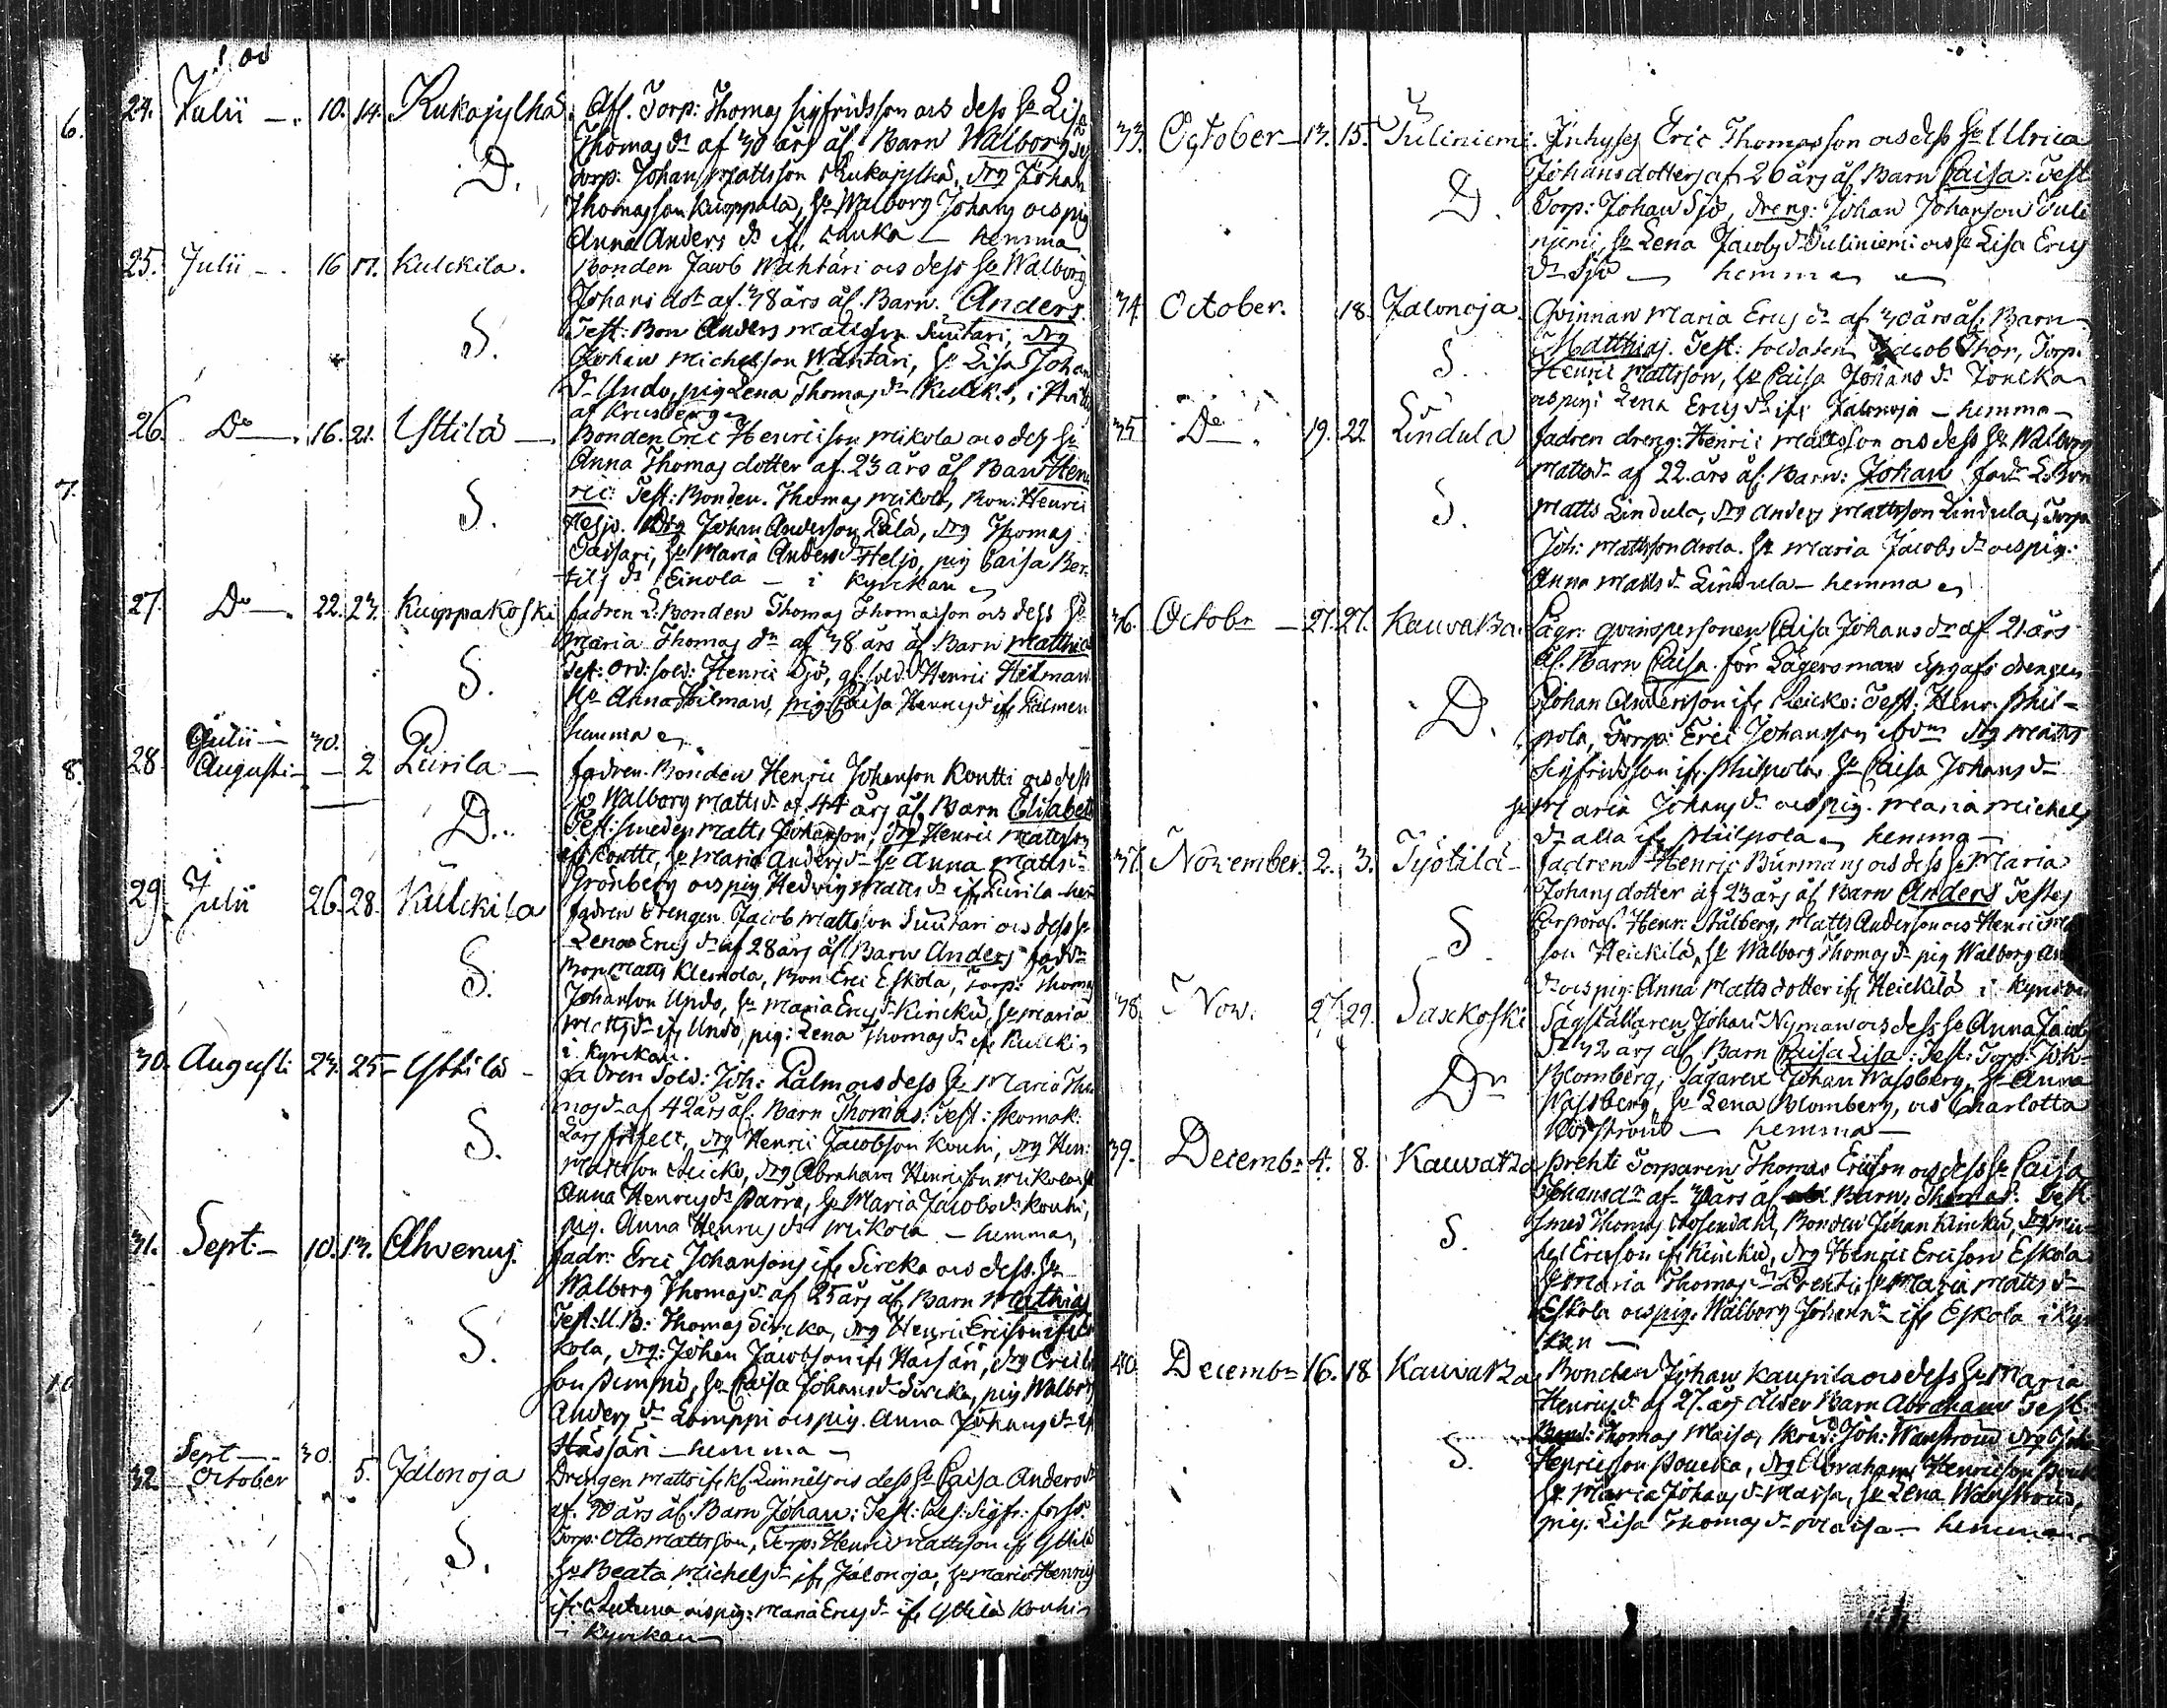 24. Julii — 10. 14. Kukajylhä. Afl. Torp: Thomas Sigfridsson ocs dess h: Lisa
6. Thomas dr af 30 års ål. Barn Walborg
D. Torp: Johan Mattsson Kukajylhä, drg Johan
Thomasson Kuoppala, h: Walborg Johans ocs pig
Anna Anders dr ifr. — hemma
25. Julii — 16 17. Kulckila. Bonden Jacob Wahtäri ocs dess h: Walborg
Johans dot. af 38 års ål. Barn. Anders.
S. Test: Bon Anders Mattsson Suutari, drg
Johan Michelsson Wahtäri, h: Lisa Johans
dr Undo, pig Lena Thomas dr Kulck:
af Krusberg
26. Do — 16. 21. Yttilä — Bonden Eric Henricsson Mikola ocs dess h:
Anna Thomas dotter af 23 års ål Barn Hen
7. ric: Test: Bonden Thomas Mikola, Bon: Henric
S. Heljo. drg Johan Andersson Lälä, drg Thomas
h: Maria Anders dr Heljo, pig Caisa Ber-
tils dr Einola — i Kyrckan
27. Do — 22. 23. Kuoppakoski fadren L: Bonden Thomas Thomasson ocs dess h:
Maria Thomas dr af 38 års ål Barn Matthias
S. Test: Ord: sold: Henric Sjö, sold: Henric Hilman
h: Anna Hilman, pig: Caisa Henrics dr ifr
hemma
Julii — 30.
8. 28 Augusti — — 2 Piirila — fadren. Bonden Henric Johansson Kontti ocs dess
h: Walborg Matts dr af 44 års ål. Barn Elisabet
D. Test: Smeden Matts Johansson, drg Henric Mattsson
ifr Kontti, h: Maria Anders dr h: Anna Matts dr
Grönberg ocs pig Hedvig Matts dr ifr Piirila — hem
29. Julii 26. 28. Kulckila fadren drengen Jacob Mattsson Suutari ocs dess h:
Lena Erics dr af 28 års ål Barn Anders fadr:
S. Bon Matts Klemola, Bon Eric Eskola, Torp: Thomas
Johansson Undo, h: Maria Erics dr Kincku, h: Maria
Matts dr ifr Undo, pig: Lena Thomas dr ifr Kulcki
i Kyrckan.
30. Augusti 23. 25 — Yttilä — fadren Sold: Joh: Palm ocs dess h: Maria Tho
mas dr af 42 års ål. Barn Thomas. Test: skomak:
S. Lars drg Henric Jacobsson Kouhi, drg Hen:
Mattsson drg Abraham Henricsson Mikola
Anna Henrics dr Parra, h: Maria Jacobs dr Kouhi,
pig. Anna Henrics dr Mikola — hemma
31. Sept: — 10. 13. Ahvenus. fadr: Eric Johanssons ifr Sircka ocs dess h:
Walborg Thomas dr af 25 års ål, Barn Mathias
S. Test: U. B: Thomas Sircka, drg Henric Ericsson ifr Es
kola, drg: Johan Jacobsson ifr Hassari, drg Erics
h: Caisa Johans dr Sircka, pig Walborg
Anders dr Lomppi ocs pig. Anna Johans dr
Hässäri — hemma —
Sept — 30.
32. October 5. Jalonoja Drengen Matts ifr ocs dess h: Caisa Anders dr
af. 30 års ål. Barn Johan: Test:
S. Torp: Otto Mattsson, Torp: Henric Mattsson ifr Yttilä
h: Beata Michels dr ifr Jalonoja, h: Maria Henrics
ocs pig: Maria Erics dr ifr Yttilä Kouhi
i Kyrckan
33. October — 13. 15. Tuliniemi. Inhyses Eric Thomasson ocs dess h: Ulrica
Johans dotter af 26 års ål Barn Caisa: Test
D. Torp: Johan Sjö, dreng: Johan Johansson Tuli
niemi, h: Lena Jacobs dr Tuliniemi ocs h: Lisa Erics
dr Sjö — hemma
34. October. 18. Jalonoja. Qvinnan Maria Erics dr af 30 års ål, Barn
Matthias. Test: soldaten Jacob Thor, Torp.
S. Henric Mattsson, h: Caisa Johans dr Toncka
ocs pig: Lena Erics dr ifr Jalonoja — hemma —
35. Do — 19. 22. Lindula fadren dreng: Henric Mattsson ocs dess h: Walborg
Matts dr af 22. års ål: Barn: Johan fadr: L: Bon
S. Matts Lindula, drg Anders Mattsson Lindula, Torp
Joh: Mattsson h: Maria Jacobs dr ocs pig:
Anna Matts dr Lindula — hemma
36. Octobr — 27. 27. Kauvatza. Lägr: qvinspersonen Caisa Johans dr af. 21 års
ål. Barn Caisa. för Lägersman upgafs drengen
D. Johan Andersson ifr Test: Henr. Phil-
pola, Torp: Eric Johansson drg Matts
Sigfridsson ifr Philpola, h: Caisa Johans dr
h: Maria Johans dr ocs pig. Maria Michels
dr alla ifr Philpola hemma —
37. November. 2. 3. Työtilä — fadren Henric Burmans ocs dess h: Maria
Johans dotter af 23 års ål Barn Anders Testes
S Corporal. Henr: Stålberg, Matts Andersson ocs Henric
son Heickilä, h: Walborg Thomas dr pig Walborg
dr ocs pig: Anna Matts dotter ifr Heickilä i Kyrckan
38. Nov. 27. 29. Saxkoski Sågställaren Johan Nyman ocs dess h: Anna Jacobs
dr 32 års ål, Barn Caisa Lisa: Test: Torp: Joh:
Dr Blomberg, Sågaren Johan Wassberg, h: Anna
Wassberg, h: Lena Blomberg, ocs Charlotta
— hemma —
39. Decembr 4. 8. Kauvatza Prehti Torparen Thomas Ericsson ocs dess h: Caisa
Johans dr af 30 års ål Barn, Thomas: Test
S. smed Thomas Rosendahl, Bonden Johan Kincku, drg Mic
hel Ericsson ifr Kincku, drg Henric Ericsson Eskola
h: Maria Thomas dr Prehti, h: Maria Matts dr
Eskola ocs pig. Walborg Johans dr ifr Eskola i Kyr
kan —
40. Decembr 16. 18 Kauvatza Bonden Johan Kaupila ocs dess h: Maria
Henrics dr af 27. års ålder Barn Abraham Test:
S. Bond: Thomas Maisa, skräd: Joh: Wanström drg
Henricsson Poucka, drg Abraham Henricsson
h: Maria Johans dr Maisa, h: Lena Wanström,
pig. Lisa Thomas dr Maisa — hemma —